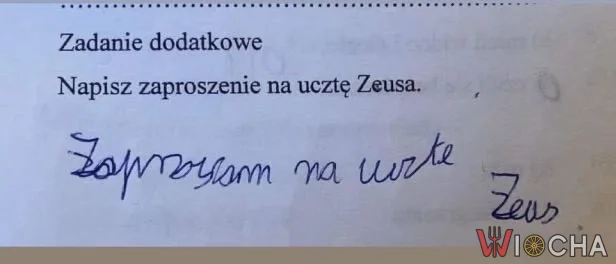 Zadanie dodatkowe
Napisz zaproszenie na ucztę Zeusa.
Zapraszam na uczte
Zeus
WIOCHA